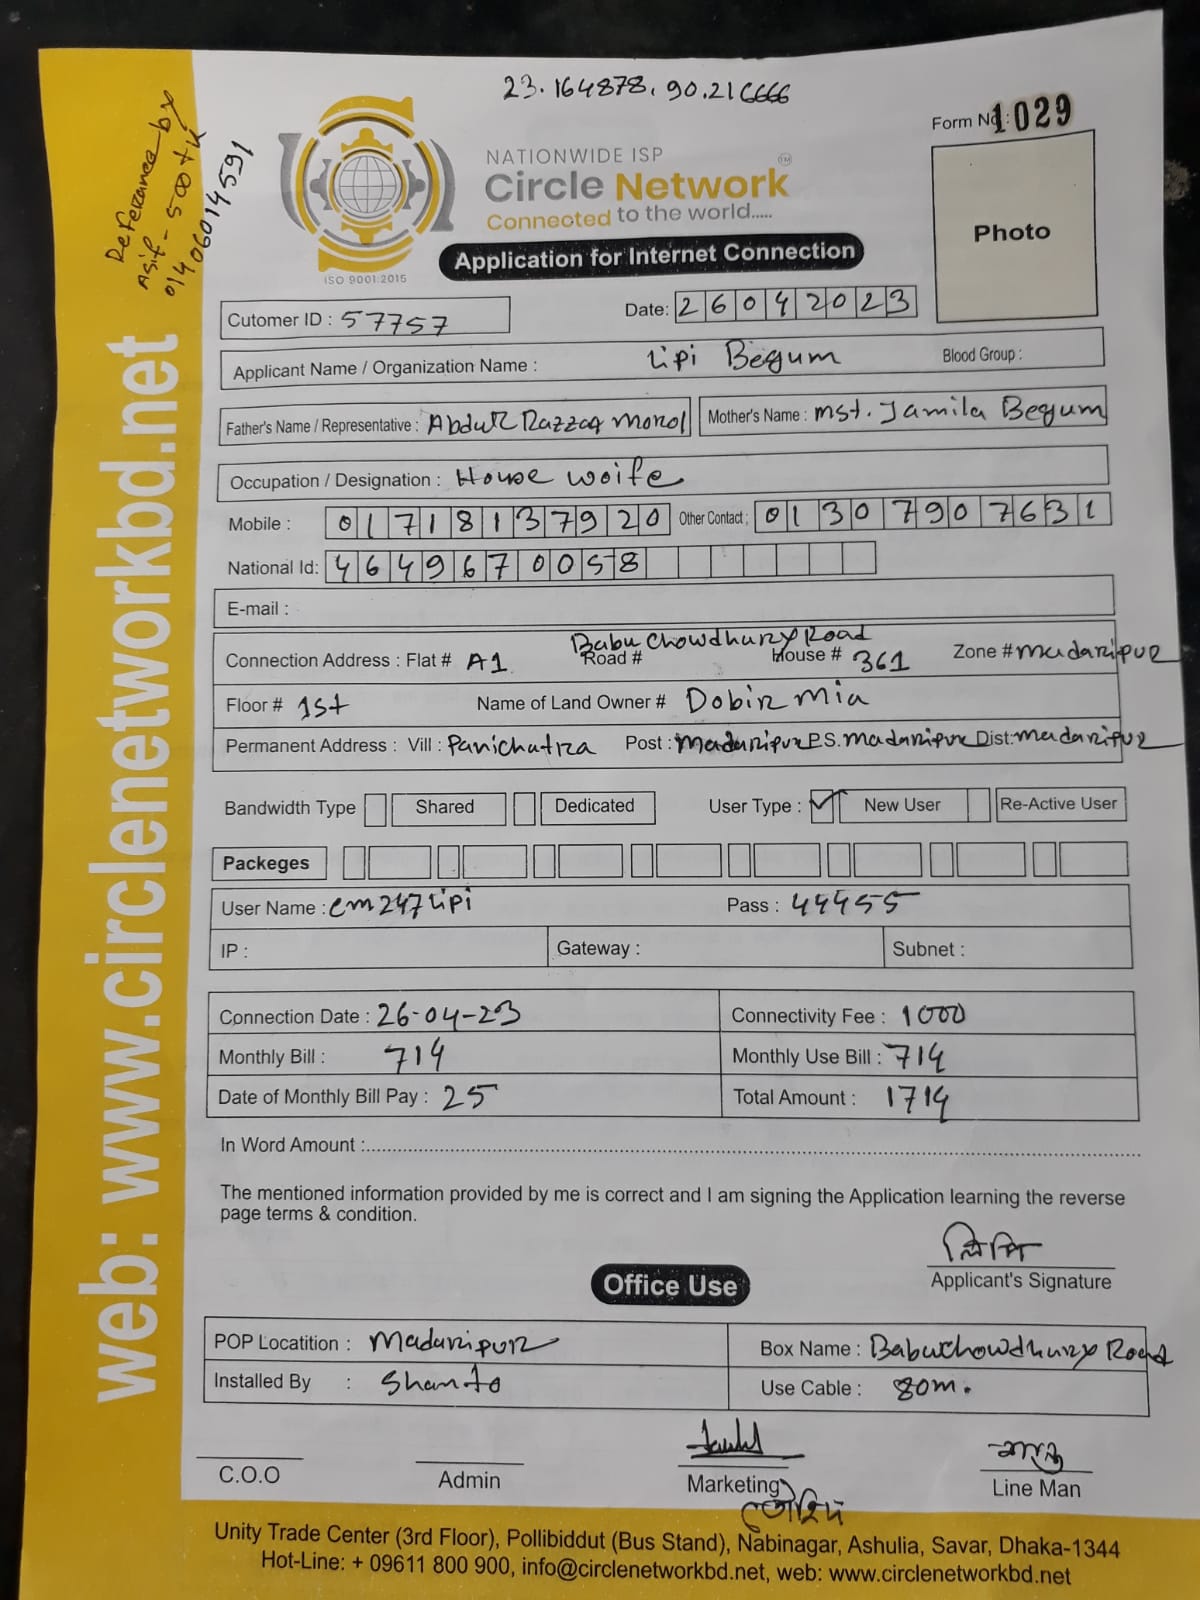 23.164878, 90.216666
Form No: 1029
Referance by
Asif - 500 tk
01406014591
NATIONWIDE ISP
Circle Network
TM
Connected to the world.....
ISO 9001:2015
Application for Internet Connection
Photo
Cutomer ID : 57757
Date: 26042023
Applicant Name / Organization Name : Lipi Begum Blood Group :
Father's Name / Representative : Abdur Razzaq Morol Mother's Name : Mst. Jamila Begum
Occupation / Designation : House woife
Mobile : 01718137920 Other Contact : 01307907631
National Id: 4649670058
E-mail :
Connection Address : Flat # A1 Road # Babu Chowdhury Road House # 361 Zone # Madaripur
Floor # 1st Name of Land Owner # Dobir Mia
Permanent Address : Vill : Panichatra Post : Madaripur P.S. Madaripur Dist: Madaripur
Bandwidth Type Shared Dedicated User Type : ✓ New User Re-Active User
Packeges
User Name : cm247lipi Pass : 44455
IP : Gateway : Subnet :
Connection Date : 26-04-23 Connectivity Fee : 1000
Monthly Bill : 714 Monthly Use Bill : 714
Date of Monthly Bill Pay : 25 Total Amount : 1714
In Word Amount :
The mentioned information provided by me is correct and I am signing the Application learning the reverse
page terms & condition.
লিপি
Applicant's Signature
Office Use
POP Locatition : Madaripur Box Name : Babu Chowdhury Road
Installed By : Shanto Use Cable : 80m.
C.O.O Admin Marketing Line Man
তৌহিদ
Unity Trade Center (3rd Floor), Pollibiddut (Bus Stand), Nabinagar, Ashulia, Savar, Dhaka-1344
Hot-Line: + 09611 800 900, info@circlenetworkbd.net, web: www.circlenetworkbd.net
web: www.circlenetworkbd.net